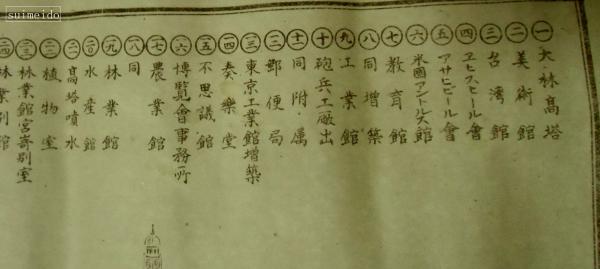 suimeido
一 大林高塔
二 美術館
三 台湾館
四 ヱビスビール會
五 アサヒビール會
六 米國アントル大館
七 教育館
八 同増築
九 工業館
十 砲兵工廠出
十一 同附属
十二 郵便局
十三 東京工業館増築
一四 奏樂堂
一五 不思議館
一六 博覧會事務所
一七 農業館
一八 同
一九 林業館
二〇 水産館
二一 高塔噴水
二二 植物室
二三 林業館宮嵜別室
二四 林業別館